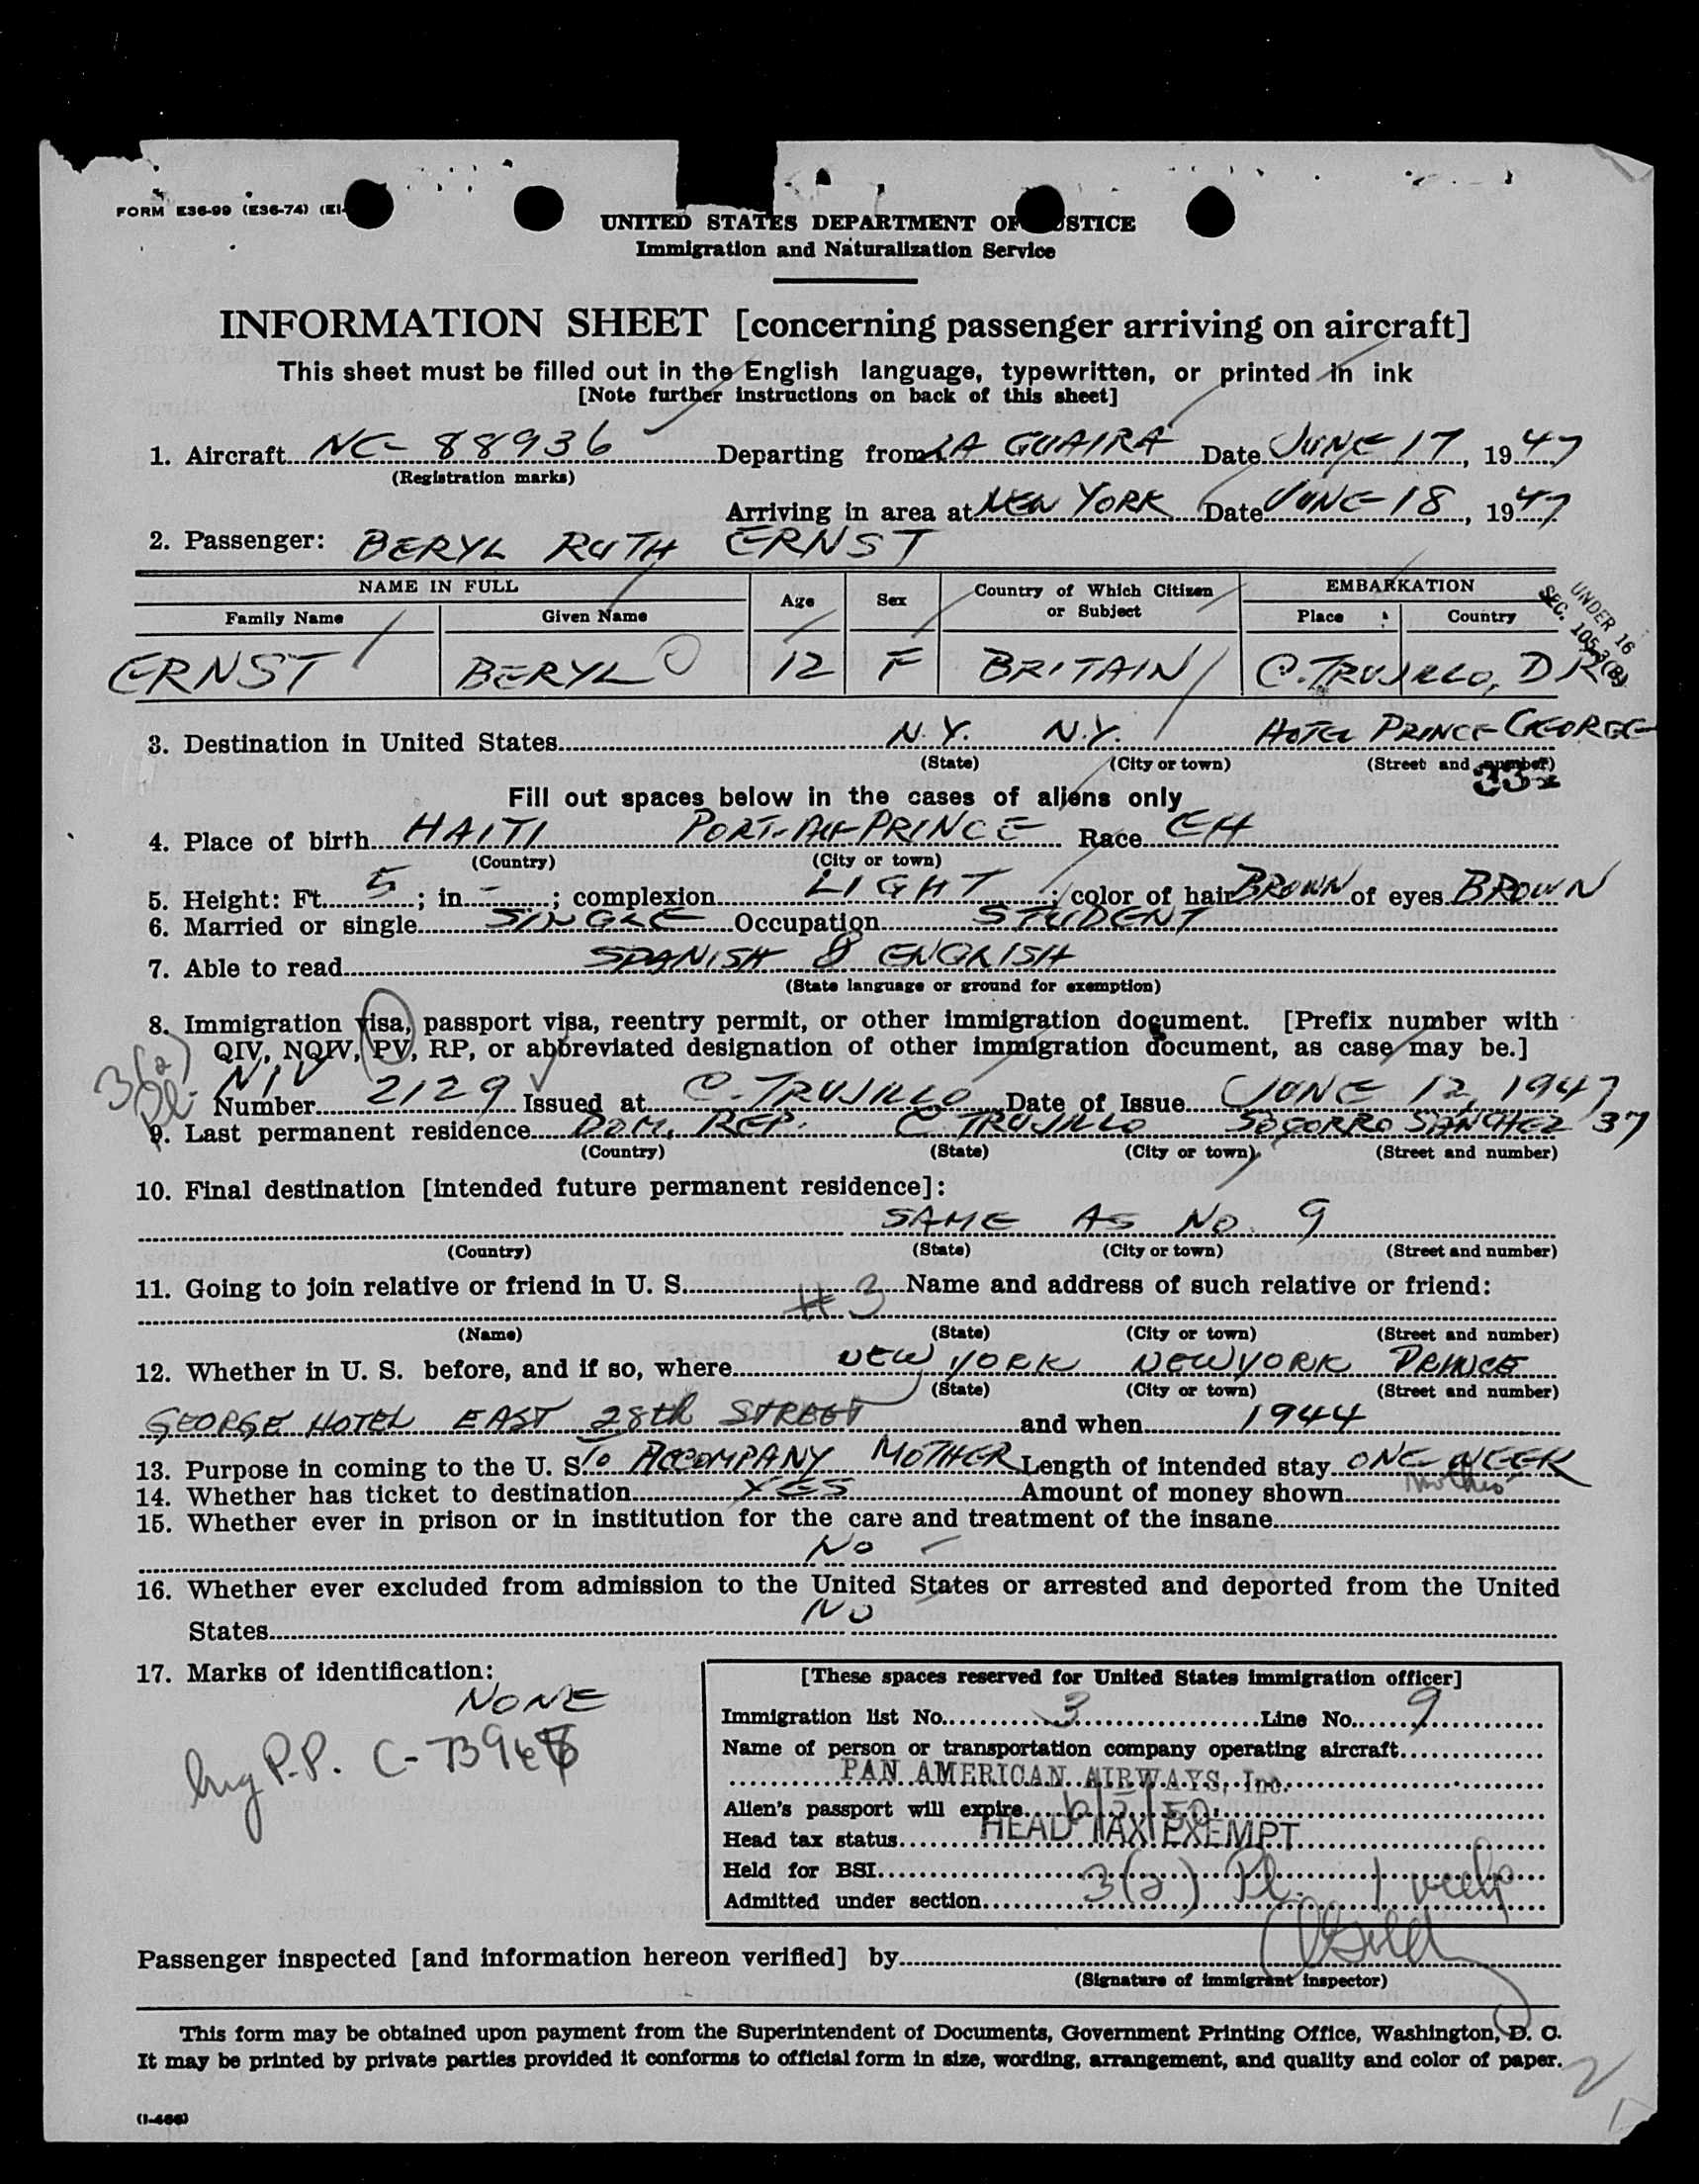 FORM E36-99 (E36-74) (EI-
UNITED STATES DEPARTMENT OF STICE
Immigration and Naturalization Service
INFORMATION SHEET [concerning passenger arriving on aircraft]
This sheet must be filled out in the English language, typewritten, or printed in ink
[Note further instructions on back of this sheet]
1. Aircraft NC-88936 Departing from LA GUAIRA Date JUNE 17, 1947
(Registration marks)
Arriving in area at NEW YORK Date JUNE 18, 1947
2. Passenger: BERYL RUTH ERNST
NAME IN FULL Age Sex Country of Which Citizen or Subject EMBARKATION
Family Name Given Name Place Country
UNDER 16
SEC. 105.3(B)
ERNST BERYL 12 F BRITAIN C. TRUJILLO, D R
3. Destination in United States N.Y. N.Y. HOTEL PRINCE GEORGE
(State) (City or town) (Street and number)
332
Fill out spaces below in the cases of aliens only
4. Place of birth HAITI PORT-AU-PRINCE Race EH
(Country) (City or town)
5. Height: Ft. 5; in. -; complexion LIGHT; color of hair BROWN of eyes BROWN
6. Married or single SINGLE Occupation STUDENT
7. Able to read SPANISH & ENGLISH
(State language or ground for exemption)
8. Immigration visa, passport visa, reentry permit, or other immigration document. [Prefix number with
QIV, NQIV, PV, RP, or abbreviated designation of other immigration document, as case may be.]
3(2)
NIV
Number 2129 Issued at C. TRUJILLO Date of Issue JUNE 12, 1947
9. Last permanent residence DOM. REP. C TRUJILLO SOCORRO SANCHEZ 37
(Country) (State) (City or town) (Street and number)
10. Final destination [intended future permanent residence]:
SAME AS NO. 9
(Country) (State) (City or town) (Street and number)
11. Going to join relative or friend in U. S. #3 Name and address of such relative or friend:
(Name) (State) (City or town) (Street and number)
12. Whether in U. S. before, and if so, where NEW YORK NEW YORK PRINCE
(State) (City or town) (Street and number)
GEORGE HOTEL EAST 28th STREET and when 1944
13. Purpose in coming to the U. S. TO ACCOMPANY MOTHER Length of intended stay ONE WEEK
14. Whether has ticket to destination YES Amount of money shown mother
15. Whether ever in prison or in institution for the care and treatment of the insane
No -
16. Whether ever excluded from admission to the United States or arrested and deported from the United
States No
17. Marks of identification:
NONE
P.P. C-
[These spaces reserved for United States immigration officer]
Immigration list No. 3 Line No. 9
Name of person or transportation company operating aircraft
PAN AMERICAN AIRWAYS, Inc.
Alien's passport will expire 6/5/50
Head tax status HEAD TAX EXEMPT
Held for BSI
Admitted under section 3(2) Pl. 1 week
Passenger inspected [and information hereon verified] by
(Signature of immigrant inspector)
This form may be obtained upon payment from the Superintendent of Documents, Government Printing Office, Washington, D. C.
It may be printed by private parties provided it conforms to official form in size, wording, arrangement, and quality and color of paper.
(I-466)